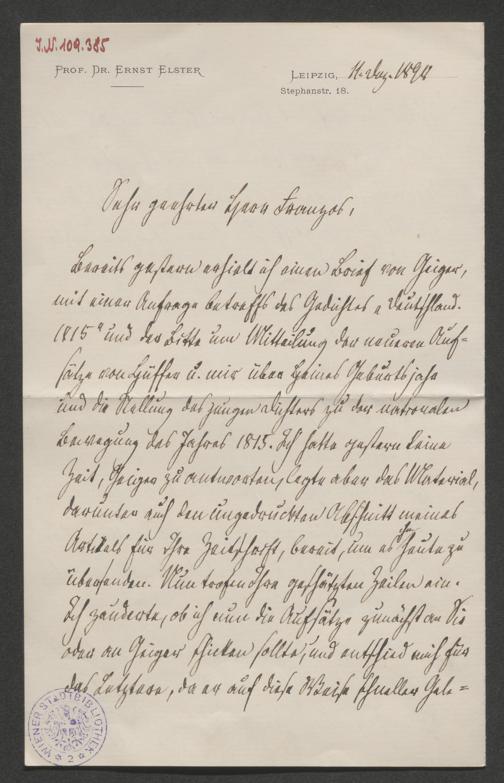 J.N. 109.385
PROF. DR. ERNST ELSTER
LEIPZIG, 11. Dez. 1894
Stephanstr. 18.
Sehr geehrter Herr Franzos,
Bereits gestern erhielt ich einen Brief von Geiger,
mit einer Anfrage betreffs des Gedichtes „Deutschland.
1815“ und der Bitte um Mitteilung der neueren Auf-
sätze von Hüffer u. mir über Heines Geburtsjahr
und die Stellung des jungen Dichters zu der nationalen
Bewegung des Jahres 1815. Ich hatte gestern keine
Zeit, Geiger zu antworten, legte aber das Material,
darunter auch den ungedruckten Abschnitt meines
Artikels für Ihre Zeitschrift, bereit, um es ihm heute zu
übersenden. Nun trafen Ihre geschätzten Zeilen ein.
Ich zauderte, ob ich nun die Aufsätze zunächst an Sie
oder an Geiger schicken sollte, und entschied mich für
das Letztere, da er auf diese Weise schneller Gele-
WIENER STADTBIBLIOTHEK
2